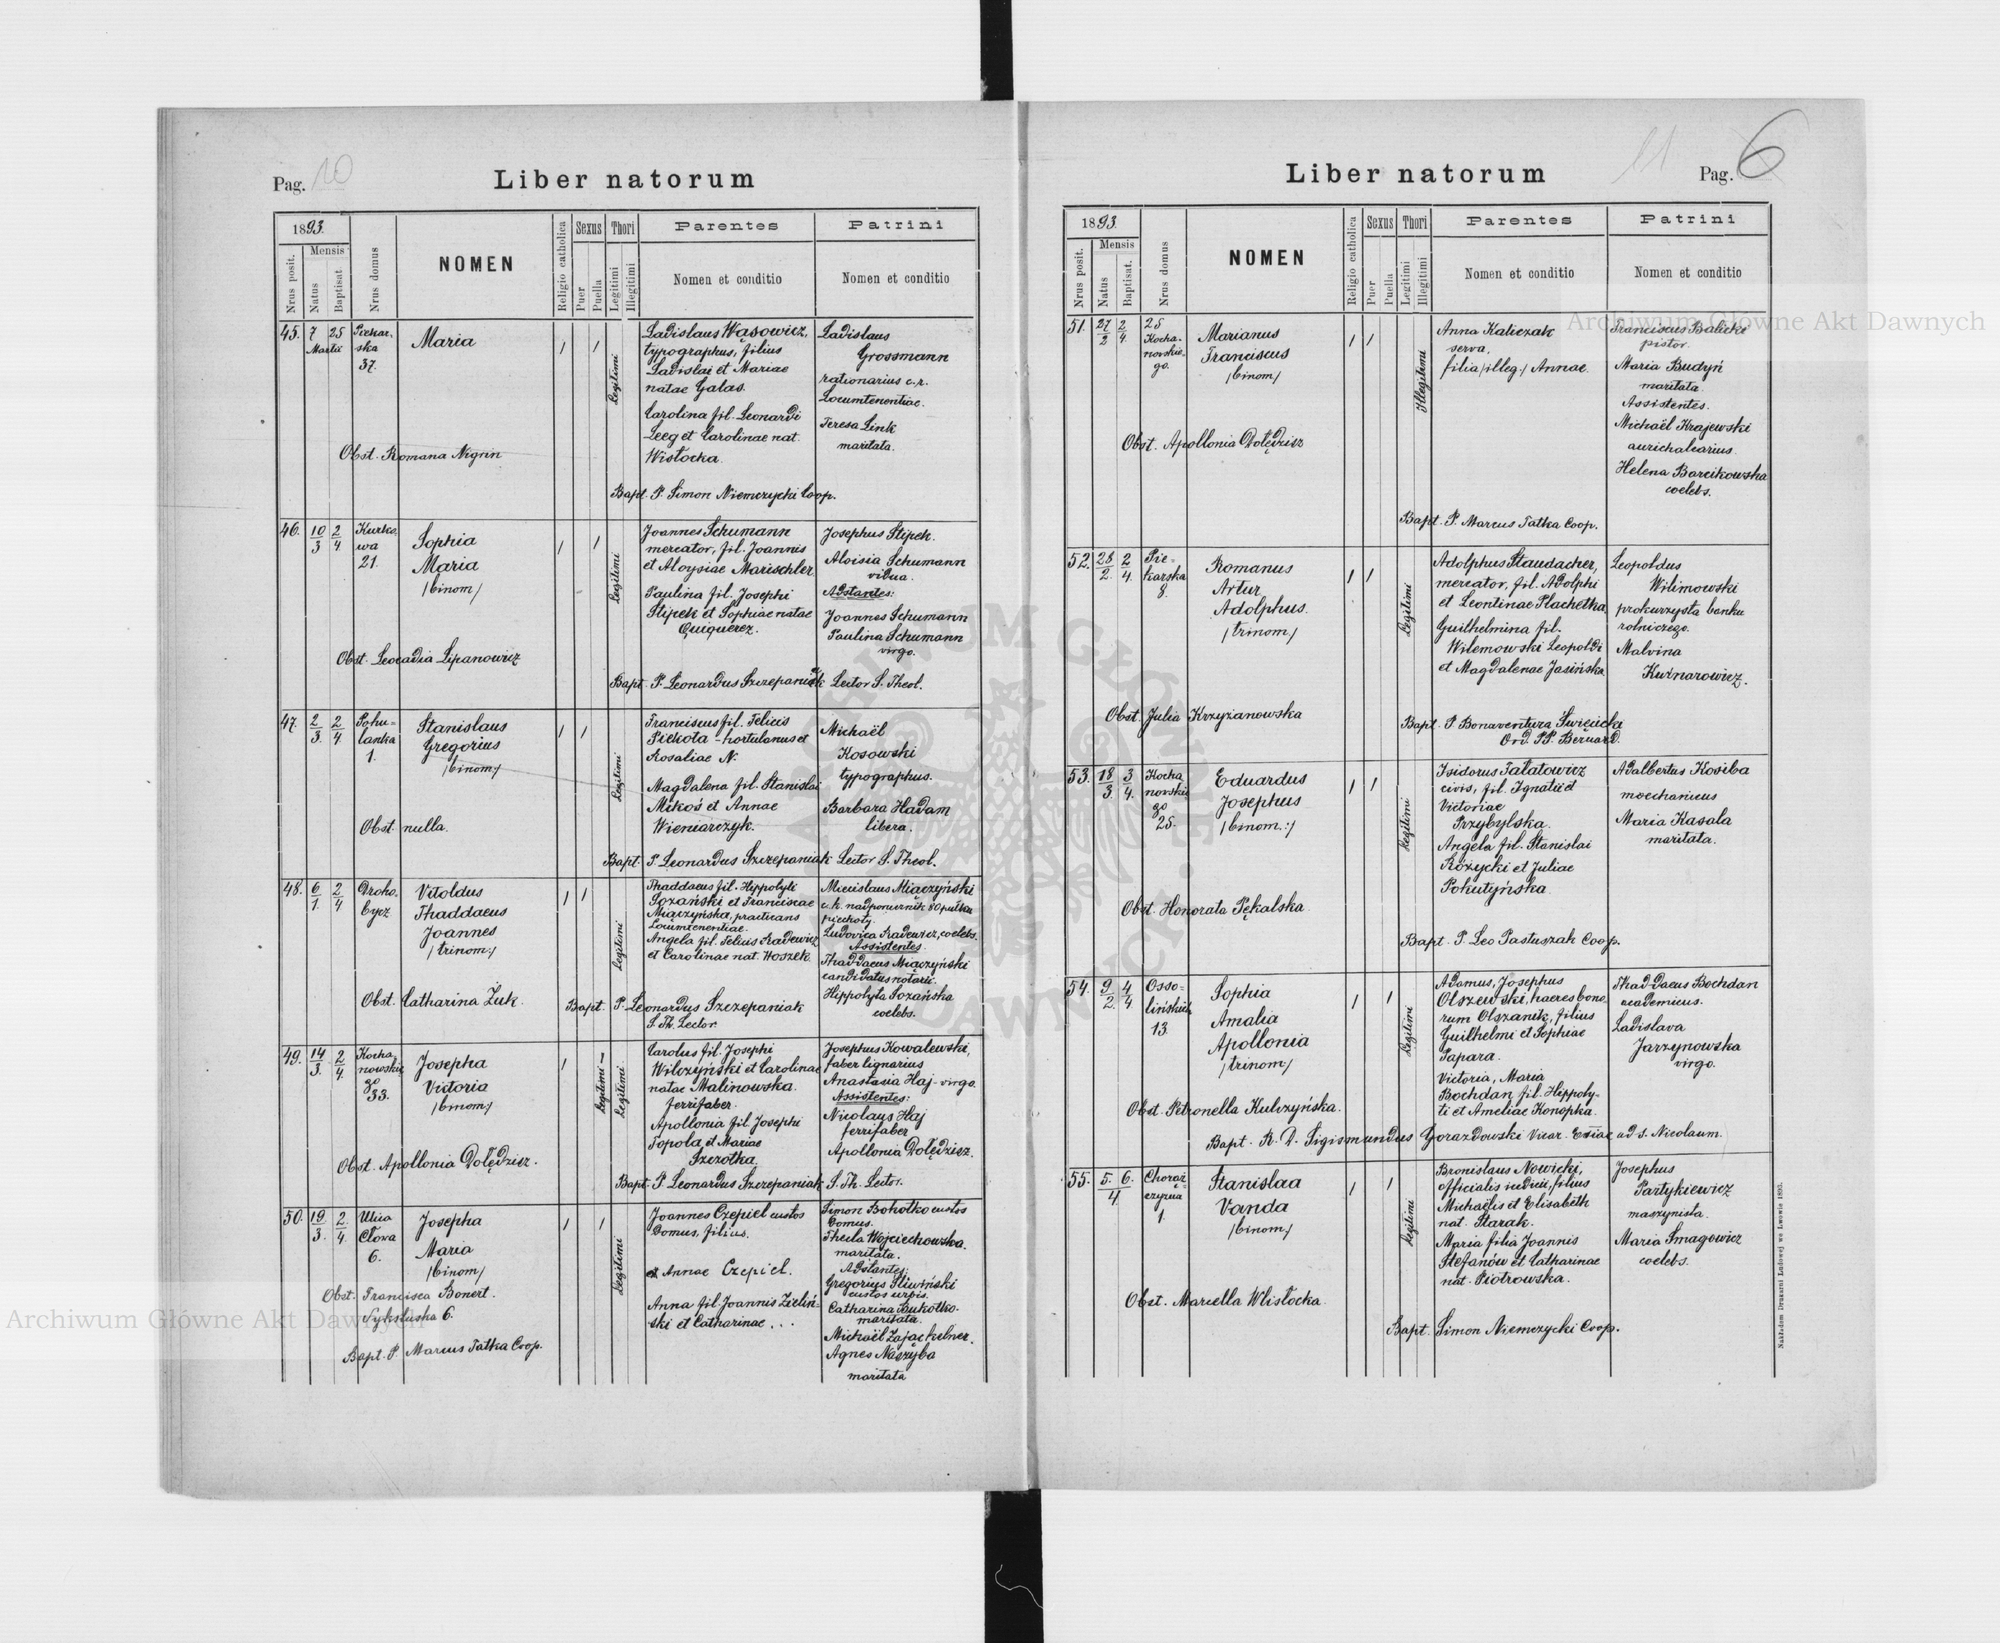 Pag. 10
Liber natorum
1893.
Nrus posit.
Mensis
Natus
Baptisat.
Nrus domus
NOMEN
Religio catholica
Sexus
Puer
Puella
Thori
Legitimi
Illegitimi
Parentes
Nomen et conditio
Patrini
Nomen et conditio
45. 7 25 Martii
Piekar-
ska
37.
Maria
Legitimi
Ladislaus Wąsowicz,
typographus, filius
Ladislai et Mariae
natae Galas.
Carolina fil. Leonardi
Leeg et Carolinae nat.
Wisłocka.
Ladislaus
Grossmann
rationarius c.r.
Locumtenentiae.
Teresa Link
maritata.
Obst. Romana Nigrin
Bapt. P. Simon Niemczycki Coop.
46. 10/3 2/4
Kurko
wa
21.
Sophia
Maria
/binom/
Legitimi
Joannes Schumann
mercator, fil. Joannis
et Aloysiae Marischler
Paulina fil. Josephi
Stipek et Sophiae natae
Quiquerez.
Josephus Stipek.
Aloisia Schumann
vidua.
Adstantes:
Joannes Schumann
Paulina Schumann
virgo.
Obst. Leocadia Lipanowicz
Bapt. P. Leonardus Szczepaniak Lector S. Theol.
47. 2/3. 2/4
Pohu-
lanka
1.
Stanislaus
Gregorius
/binom/
Legitimi
Franciscus fil. Felicis
Piekota - hortulanus et
Rosaliae N.
Magdalena fil. Stanislai
Mikoś et Annae
Wieniarczyk.
Michaël
Kosowski
typographus.
Barbara Hadam
libera.
Obst. nulla.
Bapt. P. Leonardus Szczepaniak Lector S. Theol.
48. 6/1. 2/4
Droho-
bycz
Vitoldus
Thaddaeus
Joannes
/trinom/
Legitimi
Thaddaeus fil. Hippolyti
Sozański et Franciscae
Miączyńska, practicans
Locumtenentiae.
Angela fil. Felicis Radewicz
et Carolinae nat. Hoszek.
Miecislaus Miączyński
c.k. nadporucznik 80 pułku
piechoty.
Ludovica Radewicz, coelebs.
Assistentes.
Thaddaeus Miączyński
candidatus notarii.
Hippolyta Sozańska
coelebs.
Obst. Catharina Żuk.
Bapt. P. Leonardus Szczepaniak
S. Th. Lector.
49. 14/3. 2/4
Kocha
nowskie
go
33.
Josepha
Victoria
/binom/
Legitimi
Legitimi
Carolus fil. Josephi
Wilczyński et Carolinae
natae Malinowska.
ferrifaber.
Apollonia fil. Josephi
Topola et Mariae
Szczotka.
Josephus Kowalewski,
faber lignarius
Anastasia Haj - virgo.
Assistentes:
Nicolaus Haj
ferrifaber
Apollonia Dołędzicz.
Obst. Apollonia Dołędzicz.
Bapt. P. Leonardus Szczepaniak S. Th. Lector.
50. 19/3. 2/4.
Ulica
Cłowa
6.
Josepha
Maria
/binom/
Legitimi
Joannes Czepiel custos
domus, filius.
et Annae Czepiel.
Anna fil. Joannis Zieliń-
ski et Catharinae . . .
Simon Bohotko custos
domus.
Thecla Wojciechowska.
maritata.
Adstantes:
Gregorius Śliwiński
custos urbis.
Catharina
maritata.
Michaël Zając kelner.
Agnes Naszyba
maritata
Obst. Francisca Bonert.
Sykstuska 6.
Bapt. P. Marcus Tatka Coop.
Pag. 6
11
Liber natorum
1893.
Nrus posit.
Mensis
Natus
Baptisat.
Nrus domus
NOMEN
Religio catholica
Sexus
Puer
Puella
Thori
Legitimi
Illegitimi
Parentes
Nomen et conditio
Patrini
Nomen et conditio
51. 27/2 2/4.
25
Kocha-
nowskie-
go.
Marianus
Franciscus
/binom/
Illegitimi
Anna Kaliczak
serva,
filia /illeg./ Annae.
Franciscus Balicki
pistor.
Maria Budyń
maritata.
Assistentes.
Michaël Krajewski
aurichalcarius.
Helena Barcikowska
coelebs.
Obst. Apollonia Dołędzisz
Bapt. P. Marcus Tatka Coop.
52. 28/2. 2/4.
Pie-
karska
8.
Romanus
Artur
Adolphus.
/trinom/
Legitimi
Adolphus Staudacher,
mercator, fil. Adolphi
et Leontinae Plachetka
Guilhelmina fil.
Wilemowski Leopoldi
et Magdalenae Jasińska
Leopoldus
Wilimowski
prokurzysta banku
rolniczego.
Malvina
Kuśnarowicz.
Obst. Julia Krzyżanowska
Bapt. P. Bonaventura Święcicki
Ord. PP. Bernard.
53. 18/3. 3/4.
Kocha
nowskie
go
25.
Eduardus
Josephus
/binom:/
Legitimi
Isidorus Tałatowicz
civis, fil. Ignatii et
Victoriae
Przybylska.
Angela fil. Stanislai
Różycki et Juliae
Pokutyńska.
Adalbertus Kosiba
mechanicus
Maria Kasala
maritata.
Obst. Honorata Pękalska.
Bapt. P. Leo Pastuszak Coop.
54. 9/2. 4/4
Osso-
lińskich
13.
Sophia
Amalia
Apollonia
/trinom/
Legitimi
Adamus, Josephus
Olszewski, haeres bono-
rum Olszanik, filius
Guilhelmi et Sophiae
Papara.
Victoria, Maria
Bochdan fil. Hippoly-
ti et Ameliae Konopka.
Thaddaeus Bochdan
academicus.
Ladislava
Jarzynowska
virgo.
Obst. Petronella Kulczyńska.
Bapt. R. D. Sigismundus Gorazdowski Vicar. ad S. Nicolaum.
55. 5. 6./4
Chorąż-
czyzna
1.
Stanislaa
Vanda
/binom/
Legitimi
Bronislaus Nowicki,
officialis iudicii, filius
Michaëlis et Elisabeth
nat. Starak.
Maria filia Joannis
Stefanów et Catharinae
nat. Piotrowska.
Josephus
Partykiewicz
maszynista.
Maria Smagowicz
coelebs.
Obst. Marcella Wlisłocka.
Bapt. Simon Niemczycki Coop.
Nakładem Drukarni Ludowej we Lwowie 1893.
Archiwum Główne Akt Dawnych
Archiwum Główne Akt Dawnych
ARCHIWUM GŁÓWNE AKT DAWNYCH